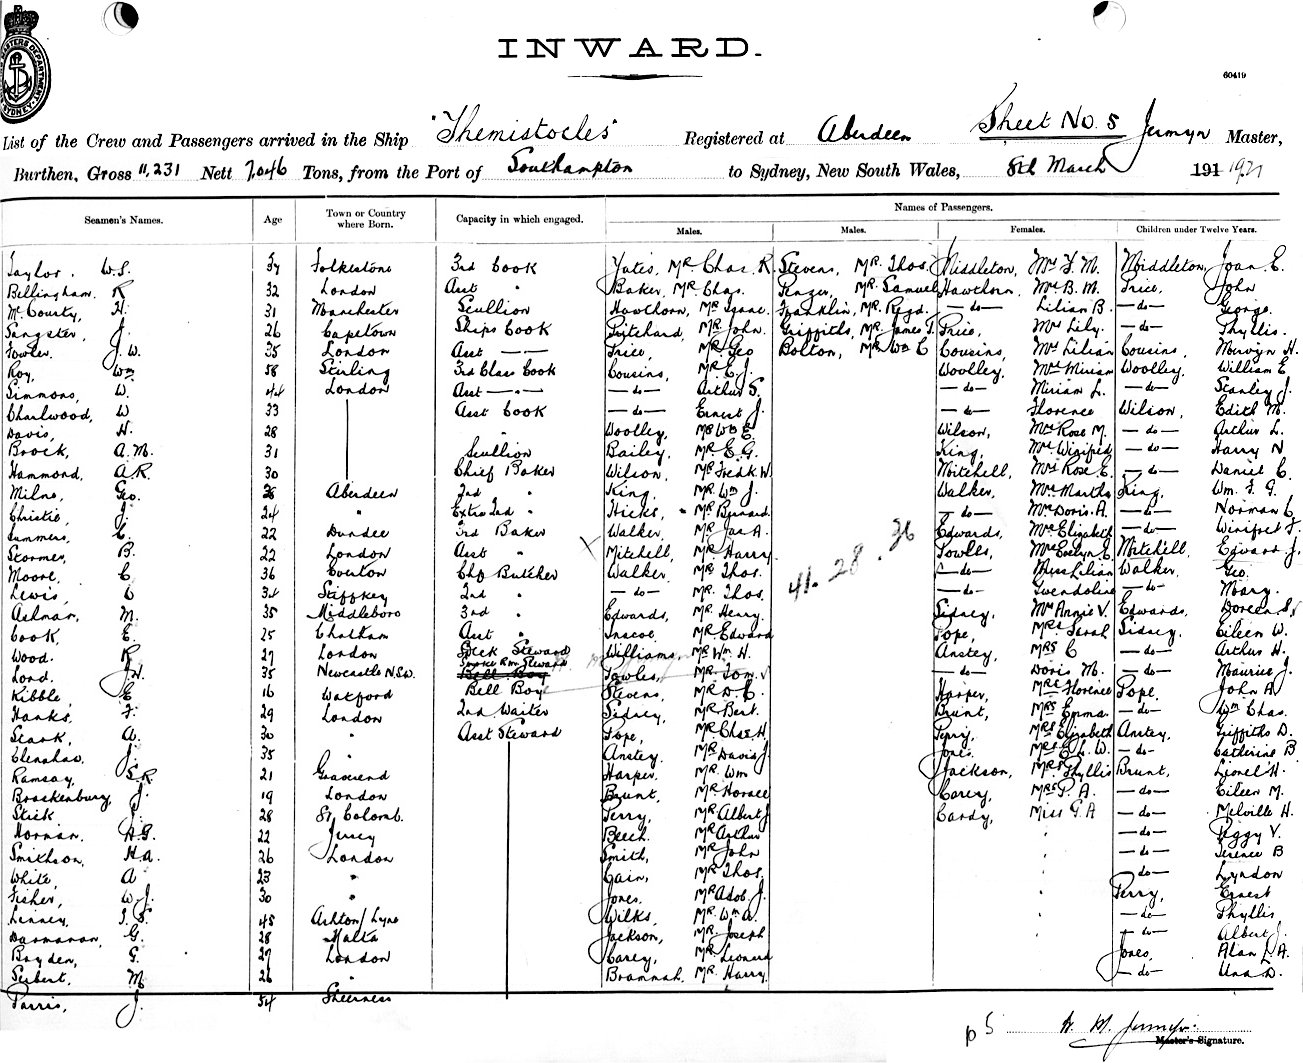 INWARD.
60419
List of the Crew and Passengers arrived in the Ship "Themistocles" Registered at Aberdeen Sheet No. 5 Jermyn Master,
Burthen, Gross 11,231 Nett 7,046 Tons, from the Port of Southampton to Sydney, New South Wales, 8th March 191 1921
Names of Passengers.
Seamen's Names. Age Town or Country where Born. Capacity in which engaged. Males. Males. Females. Children under Twelve Years.
Taylor. W.S. 37 Folkestone 3rd Cook Yates, Mr Chas. R. Stevens, Mr Thos. Middleton, Mrs F. M. Middleton, Joan E.
Bellingham. R 32 London Asst " Baker, Mr Chas. Penzer, Mr Samuel Hawthorn, Mrs B. M. Price, John
McCourty, H. 31 Manchester Scullion Hawthorn, Mr Isaac Franklin, Mr Regd. -do- Lilian B. -do- George.
Sangster, J. 26 Capetown Ships Cook Pritchard, Mr John. Griffiths, Mr James T. Price, Mrs Lily. -do- Phyllis.
Fowler, J. W. 35 London Asst -- Price, Mr Geo Bolton, Mr Wm C Cousins, Mrs Lilian Cousins, Mervyn H.
Roy, Wm 58 Stirling 3rd Class Cook Cousins, Mr C. J. Woolley, Mrs Miriam Woolley, William E
Simmons, W. 44 London Asst -"- -do- Arthur S. -do- Miriam L. -do- Stanley J.
Charlwood, W 33 Asst Cook -do- Ernest J. -do- Florence Wilson, Edith M.
Davis, H. 28 " Woolley, Mr Wm E. Wilson, Mrs Rose M. -do- Arthur L.
Brock, A. M. 31 Scullion Bailey, Mr E. G. King, Mrs Winifred -do- Harry N
Hammond, A.R. 30 Chief Baker Wilson, Mr Fredk W. Mitchell, Mrs Rose E. -do- Daniel C.
Milne, Geo. 38 Aberdeen 2nd " King, Mr Wm J. Walker, Mrs Martha King, Wm. F. G.
Christie, J. 24 " Extra 2nd " Hicks, Mr Bernard -do- Mrs Doris A. -do- Norman C
Summers, C. 22 Dundee 3rd Baker Walker, Mr Jas A. Edwards, Mrs Elizabeth -do- Winifred F.
Stormer, B. 22 London Asst " Mitchell, Mr Harry. Towles, Mrs Evelyn E. Mitchell, Edward J.
Moore, C 36 Everton Chf Butcher Walker, Mr Thos. -do- Miss Lilian Walker, Geo.
Lewis, C 34 Stiffkey 2nd " -do- Mr Thos. -do- Gwendoline -do- Mary.
41. 28. 36
Ashman, M. 35 Middleboro 3rd " Edwards, Mr Henry. Sidney, Mrs Annie V. Edwards, Doreen S.
Cook, E. 25 Chatham Asst " Inscoe, Mr Edward Pope, Mrs Sarah Sidney, Eileen W.
Wood. R 27 London Deck Steward Williamson, Mr Wm H. Anstey, Mrs C -do- Arthur H.
Lord, J.H. 35 Newcastle N.S.W. Smoke Rm Steward Towles, Mr Tom. -do- Doris M. -do- Maurice J.
Bell Boy
Kibble, E 16 Watford Bell Boy Stevens, Mr D. C. Harper, Mrs Florence Pope, John A
Hanks, F. 29 London 2nd Waiter Sidney, Mr Bert. Brunt, Mrs Emma -do- Wm Chas.
Scark, A. 30 " Asst Steward Pope, Mr Chas H. Perry, Mrs Elizabeth Anstey, Griffiths D.
Clenahan, J. 35 " Anstey, Mr Davis J. Jones, Mrs E. L. W. -do- Catherine B
Ramsay, S.R 21 Gravesend Harper. Mr Wm Jackson, Mrs Phyllis Brunt, Lionel H.
Brackenbury, J. 19 London Brunt, Mr Horace Carey, Mrs P. A. -do- Eileen M.
Stick J. 28 St Colomb. Perry, Mr Albert J. Cardy, Miss G. A -do- Melville H.
Horman. A.G. 22 Jersey Beech. Mr Arthur -do- Peggy V.
Smithson, H.A. 26 London Smith, Mr John -do- Terence B
White, A 23 " Cain, Mr Thos. -do- Lyndon
Fisher, W.J. 30 " Jones. Mr Adob. J. Perry, Ernest
Lenney, J. S. 45 Ashton/Lyne Wilks, Mr Wm A. -do- Phyllis
Darmanan, G. 28 Malta Jackson, Mr Joseph -do- Albert J.
Boyden, G. 27 London Carey, Mr Leonard Jones, Alan L A.
Seibert, M. 26 " Brannah, Mr Harry. -do- Una D.
Parris, J. 54 Sheerness
p 5 A. M. Jermyn.
Master's Signature.